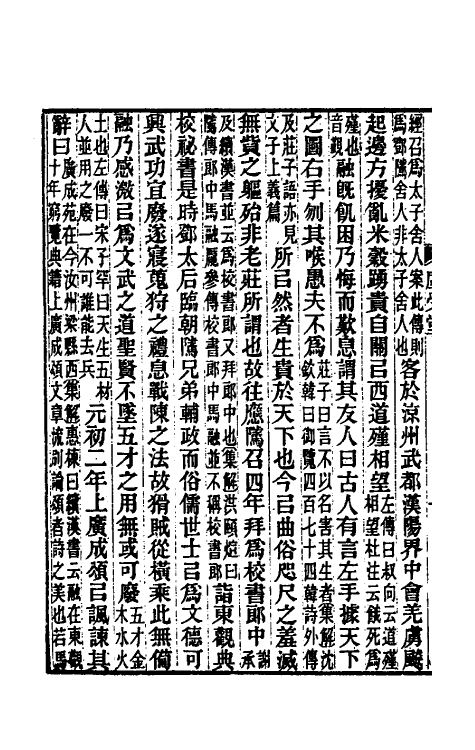 經召爲太子舍人案此傳則爲鄧隲舍人非太子舍人也客於涼州武都漢陽界中會羌虜飈
起邊方擾亂米穀踴貴自關㠯西道殣相望左傳曰叔向云道殣相望杜注云餓死爲
殣也音覲融旣飢困乃悔而歎息謂其友人曰古人有言左手據天下
之圖右手刎其喉愚夫不爲莊子曰言不以名害其生者集解沈欽韓曰御覽四百七十四韓詩外傳
及莊子語亦見文子上義篇所㠯然者生貴於天下也今㠯曲俗咫尺之羞滅
無貲之軀殆非老莊所謂也故往應隲召四年拜爲校書郎中謝承
及續漢書並云爲校書郎又拜郎中也集解洪頤煊曰隲傳郎中馬融龐參傳校書郎中馬融並不稱校書郎詣東觀典
校祕書是時鄧太后臨朝隲兄弟輔政而俗儒世士㠯爲文德可
興武功宜廢遂寢蒐狩之禮息戰陳之法故猾賊從橫乘此無備
融乃感激㠯爲文武之道聖賢不墜五才之用無或可廢五才金木水火
土也左傳曰宋子罕曰天生五材人並用之廢一不可誰能去兵元初二年上廣成頌㠯諷諫其
辭曰廣成苑在今汝州梁縣西集解惠棟曰續漢書云融在東觀十年窮覽典籍上廣成頌文章流別論頌者詩之美也若馬